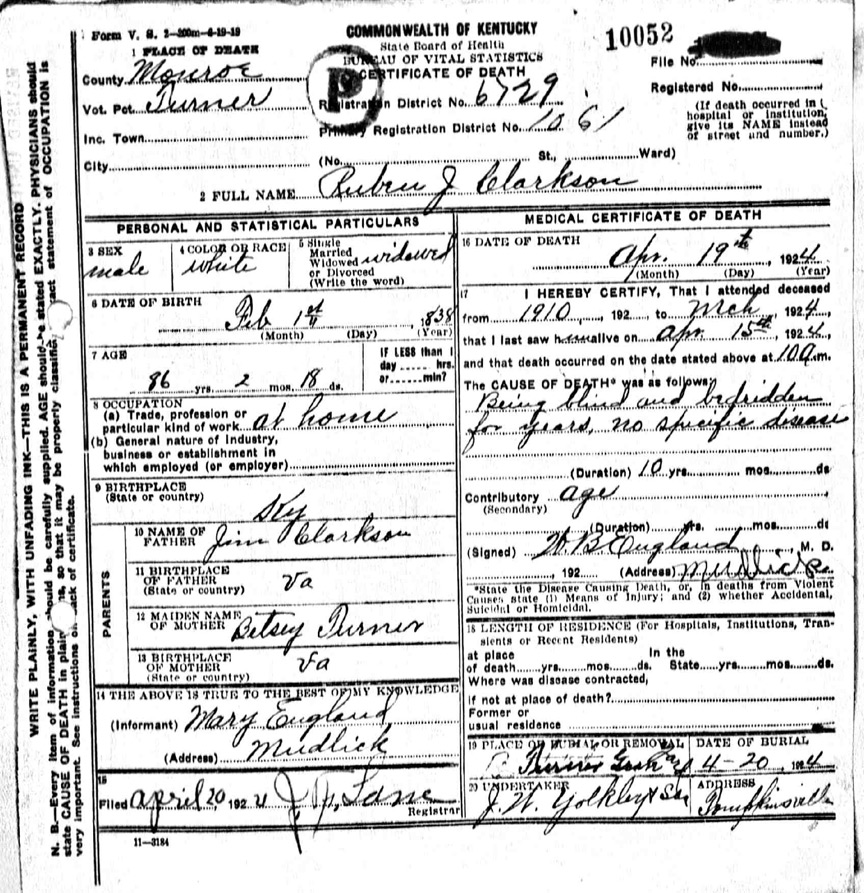 Form V. S. 2—200m—6-19-19
COMMONWEALTH OF KENTUCKY
State Board of Health
BUREAU OF VITAL STATISTICS
CERTIFICATE OF DEATH
10052
File No.
Registered No.
(If death occurred in hospital or institution, give its NAME instead of street and number.)
1 PLACE OF DEATH
County Monroe
Vot. Pct. Turner
Inc. Town
City
P
Registration District No. 6729
Primary Registration District No. 1061
(No. St., Ward)
2 FULL NAME Ruben J Clarkson
PERSONAL AND STATISTICAL PARTICULARS
3 SEX
male
4 COLOR OR RACE
white
5 Single
Married
Widowed
or Divorced
(Write the word)
widowed
6 DATE OF BIRTH
Feb 1st 1838
(Month) (Day) (Year)
7 AGE
86 yrs. 2 mos. 18 ds.
IF LESS than 1
day hrs.
or min?
8 OCCUPATION
(a) Trade, profession or
particular kind of work at home
(b) General nature of Industry,
business or establishment in
which employed (or employer)
9 BIRTHPLACE
(State or country)
Ky
PARENTS
10 NAME OF
FATHER
Jim Clarkson
11 BIRTHPLACE
OF FATHER
(State or country)
Va
12 MAIDEN NAME
OF MOTHER
Betsey Turner
13 BIRTHPLACE
OF MOTHER
(State or country)
Va
14 THE ABOVE IS TRUE TO THE BEST OF MY KNOWLEDGE
(Informant) Mary England
(Address) Mudlick
15
Filed April 20 1924 Lane
Registrar
11—3184
MEDICAL CERTIFICATE OF DEATH
16 DATE OF DEATH
Apr. 19th, 1924
(Month) (Day) (Year)
17 I HEREBY CERTIFY, That I attended deceased
from 1910, 192 to Mch, 1924
that I last saw him alive on Apr 15th, 1924,
and that death occurred on the date stated above at m.
The CAUSE OF DEATH* was as follows:
Being blind and bedridden
for years, no specific disease
(Duration) 10 yrs. mos. ds
Contributory age
(Secondary)
(Duration) yrs. mos. ds
(Signed) W. B England, M. D.
, 192 (Address) Mudlick
*State the Disease Causing Death, or, in deaths from Violent
Causes state (1) Means of Injury; and (2) whether Accidental,
Suicidal or Homicidal.
18 LENGTH OF RESIDENCE (For Hospitals, Institutions, Tran-
sients or Recent Residents)
at place In the
of death yrs. mos. ds. State yrs. mos. ds.
Where was disease contracted,
if not at place of death?
Former or
usual residence
19 PLACE OF BURIAL OR REMOVAL
Turner
DATE OF BURIAL
4-20 1924
20 UNDERTAKER
J. W. Yokley & Son
ADDRESS
Tompkinsville
WRITE PLAINLY, WITH UNFADING INK—THIS IS A PERMANENT RECORD
N. B.—Every item of information should be carefully supplied. AGE should be stated EXACTLY. PHYSICIANS should
state CAUSE OF DEATH in plain so that it may be properly classified. Exact statement of OCCUPATION is
very important. See instructions on back of certificate.